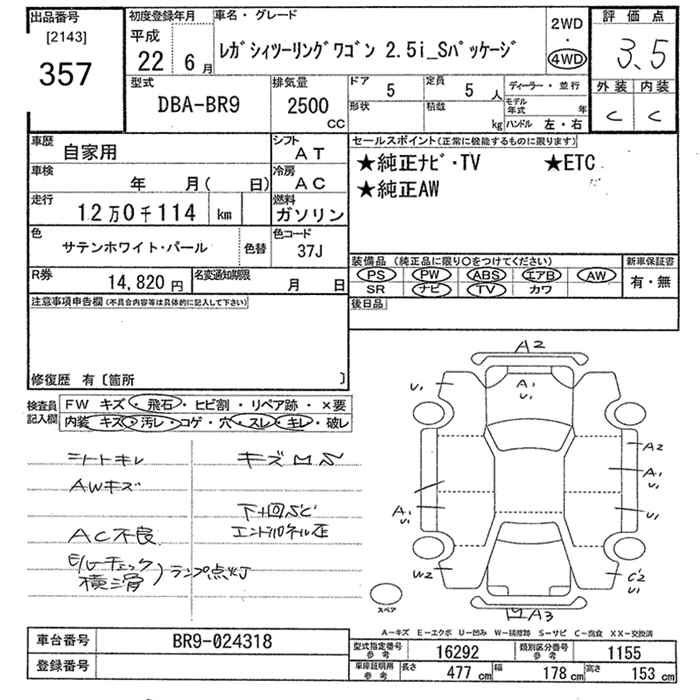 出品番号
[2143]
357
初度登録年月
平成
22年 6月
車名・グレード
レガシィツーリングワゴン 2.5i_Sパッケージ
2WD
・
4WD
評価点
3.5
外装 内装
C C
型式
DBA-BR9
排気量
2500
CC
ドア
5
定員
5人
形状
積載
kg
ディーラー・並行
モデル年式 年
ハンドル 左・右
車歴
自家用
シフト
AT
車検
年 月( 日)
冷房
AC
走行
12万0千114 km
燃料
ガソリン
色
サテンホワイト・パール
色替
色コード
37J
R券
14,820円
名変通知期限
月 日
セールスポイント(正常に機能するものに限ります)
★純正ナビ・TV ★ETC
★純正AW
装備品(純正品に限り〇をつけてください)
PS PW ABS エアB AW
SR ナビ TV カワ
新車保証書
有・無
後日品
注意事項申告欄(不具合内容等は具体的に記入して下さい)
修復歴 有〔箇所 〕
検査員記入欄
FW キズ・飛石・ヒビ割・リペア跡・×要
内装 キズ・汚レ・コゲ・穴・スレ・キレ・破レ
シートキレ
AWキズ
AC不良
E/Gチェック
横滑
ランプ点灯
キズ凹S
下回サビ
エンドパネル歪
A2
U1
A1
U1
A2
A1
U1
A1
U1
U1
W2
C2
U1
A3
スペア
A-キズ E-エクボ U-凹み W-補修跡 S-サビ C-腐食 XX-交換済
車台番号
BR9-024318
登録番号
型式指定番号
参考
16292
類別区分番号
参考
1155
車庫証明用
参考
長さ
477 cm
幅
178 cm
高さ
153 cm